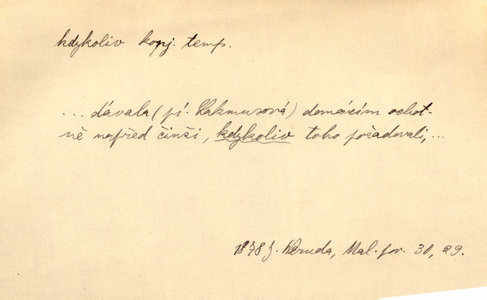 kdykoliv konj. temp.
... dávala (pí. Lakmusová) domácím ochot-
ně napřed činži, kdykoliv toho požadovali, ...
1878 J. Neruda, Mal. pov. 30, 29.